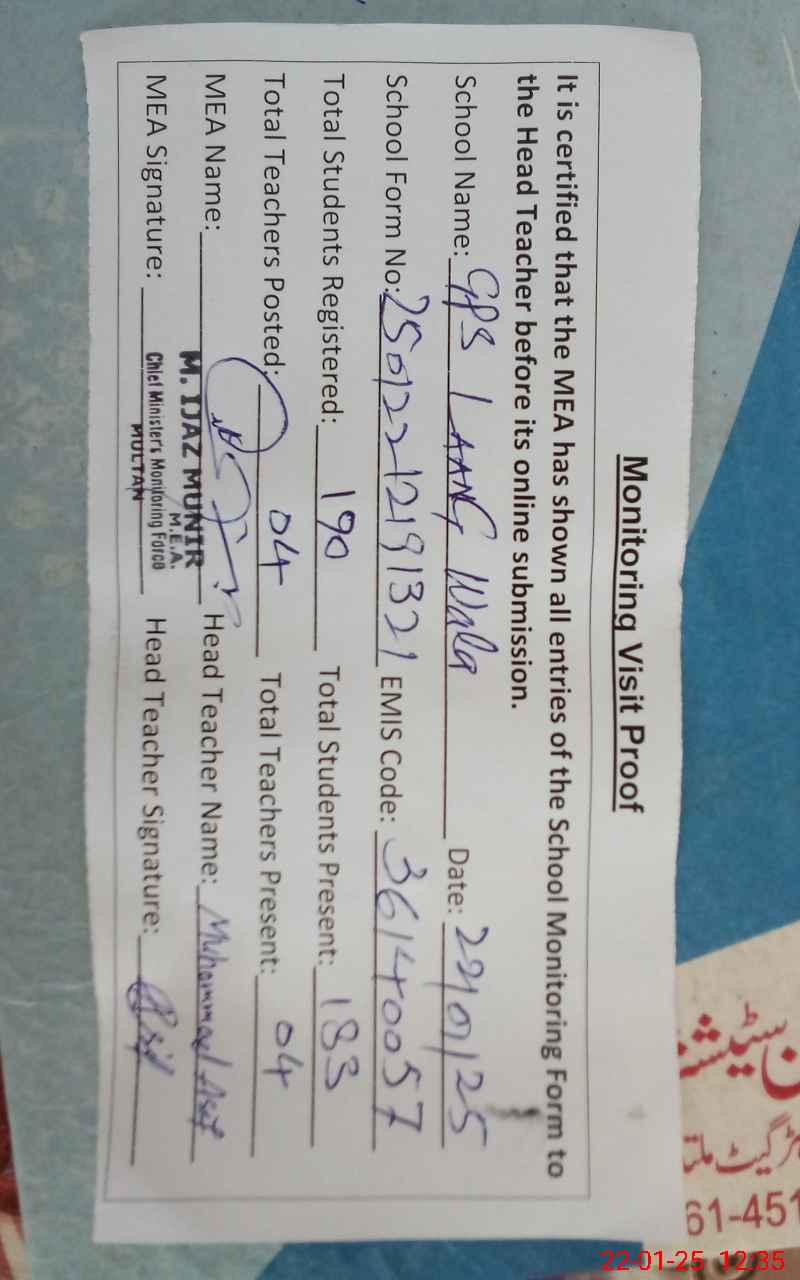 Monitoring Visit Proof
It is certified that the MEA has shown all entries of the School Monitoring Form to
the Head Teacher before its online submission.
School Name: GPS LAANG Wala Date: 22/01/25
School Form No: 25012212191321 EMIS Code: 36140057
Total Students Registered: 190 Total Students Present: 183
Total Teachers Posted: 04 Total Teachers Present: 04
MEA Name: Head Teacher Name: Muhammad Asif
M. IJAZ MUNIR
M.E.A.
MEA Signature: Head Teacher Signature: Asif
Chief Minister's Monitoring Force
MULTAN
61-451
22-01-25 12:35